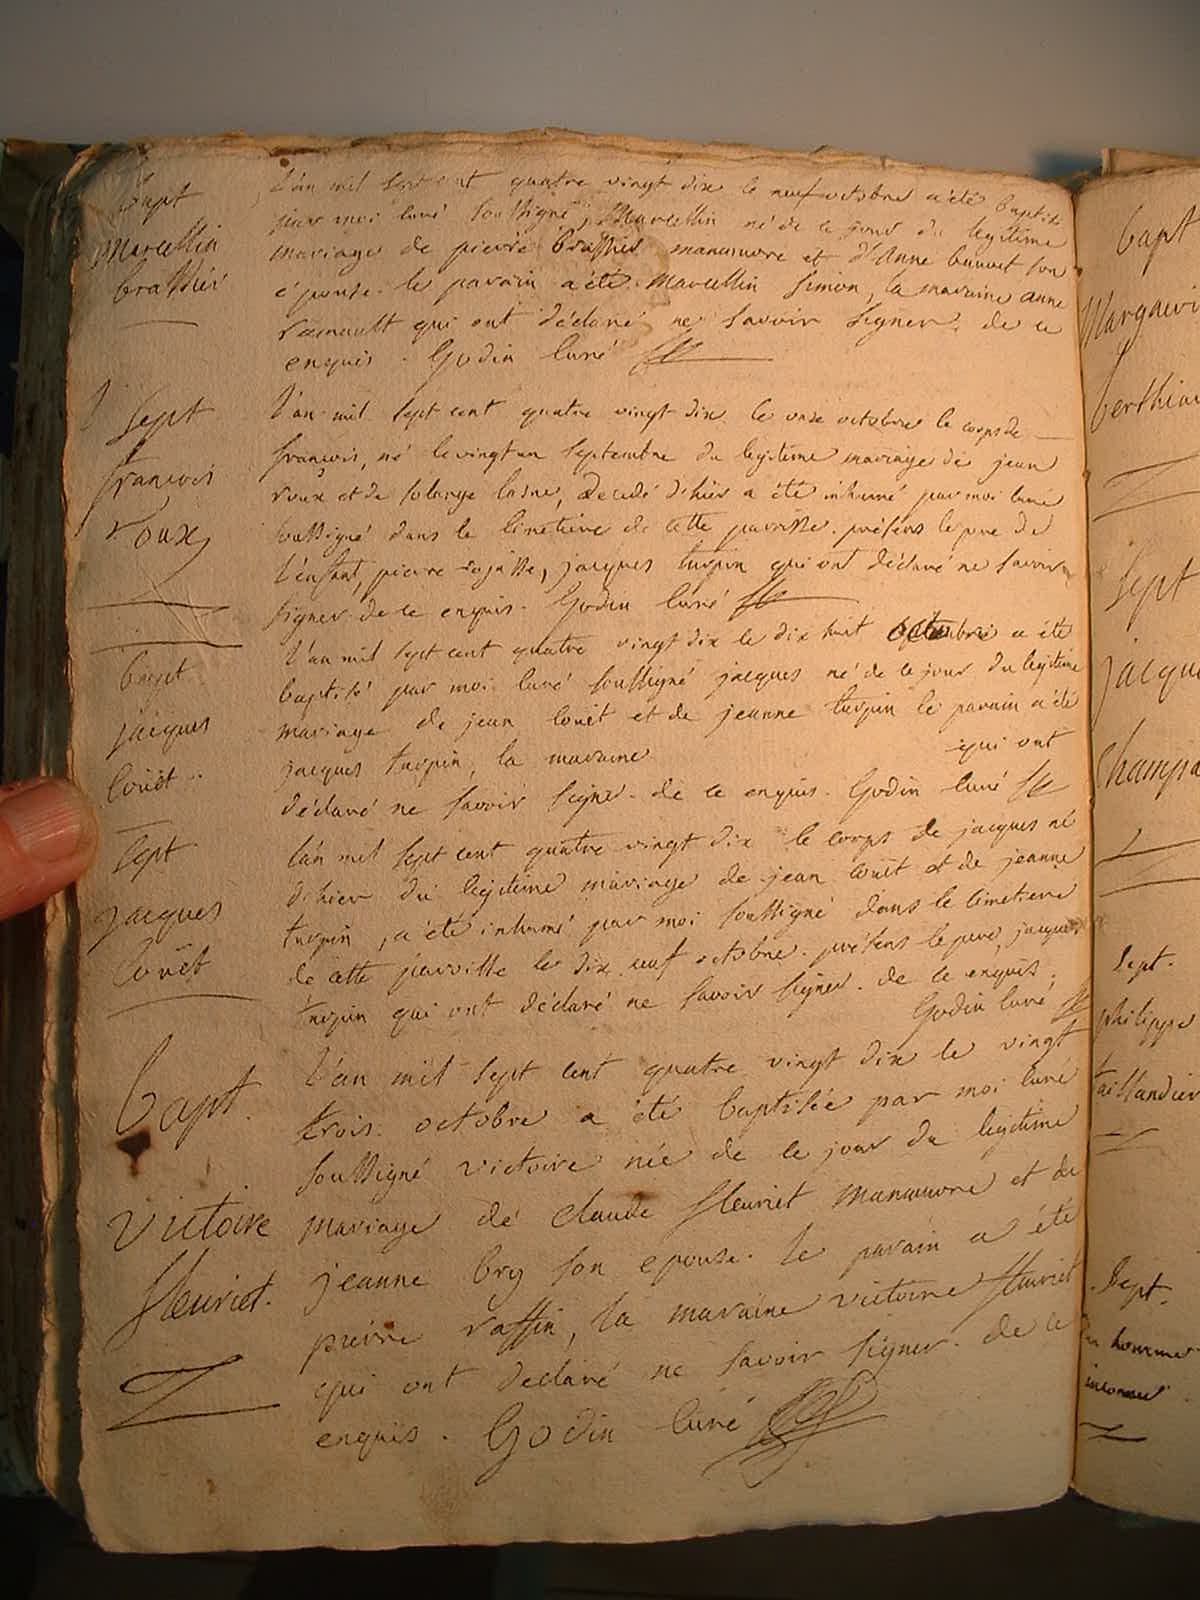 Bapt
Marcellin
brassier
L'an mil sept cent quatre vingt dix le neuf octobre a été baptisé
par moi curé soussigné, Marcellin né de ce jour du legitime
mariage de pierre brassier manœuvre et d'Anne son
épouse. le parain a été Marcellin Simon, la maraine anne
qui ont déclaré ne savoir signer. de ce
enquis. Godin curé
Sept
francois
roux
L'an mil sept cent quatre vingt dix le onze octobre le corps de
françois, né le vingt un septembre du legitime mariage de jean
roux et de solange lasne, decedé d'hier a été inhumé par moi curé
soussigné dans le cimetiere de cette paroisse. présens le pere de
l'enfant, pierre jacques turpin qui ont déclaré ne savoir
signer de ce enquis. Godin curé
bapt
jacques
couët
L'an mil sept cent quatre vingt dix le dix huit octobre a été
baptisé par moi curé soussigné jacques né de ce jour du legitime
mariage de jean couët et de jeanne turpin le parain a été
jacques turpin, la maraine qui ont
déclaré ne savoir signer. de ce enquis. Godin curé
Sept
jacques
couët
L'an mil sept cent quatre vingt dix le corps de jacques né
d'hier du legitime mariage de jean couët et de jeanne
turpin, a été inhumé par moi soussigné dans le cimetiere
de cette paroisse le dix neuf octobre. présens le pere, jacques
turpin qui ont déclaré ne savoir signer. de ce enquis.
Godin curé
bapt.
victoire
fleuriet.
L'an mil sept cent quatre vingt dix le vingt
trois octobre a été baptisée par moi curé
soussigné victoire née de ce jour du legitime
mariage de claude fleuriet manœuvre et de
jeanne bry son epouse. le parain a été
pierre raffin, la maraine victoire fleuriet
qui ont declaré ne savoir signer. de ce
enquis. Godin curé
bapt
Sept
jacque
Sept.
philippe
taillandier
Sept.
homme
inconnu